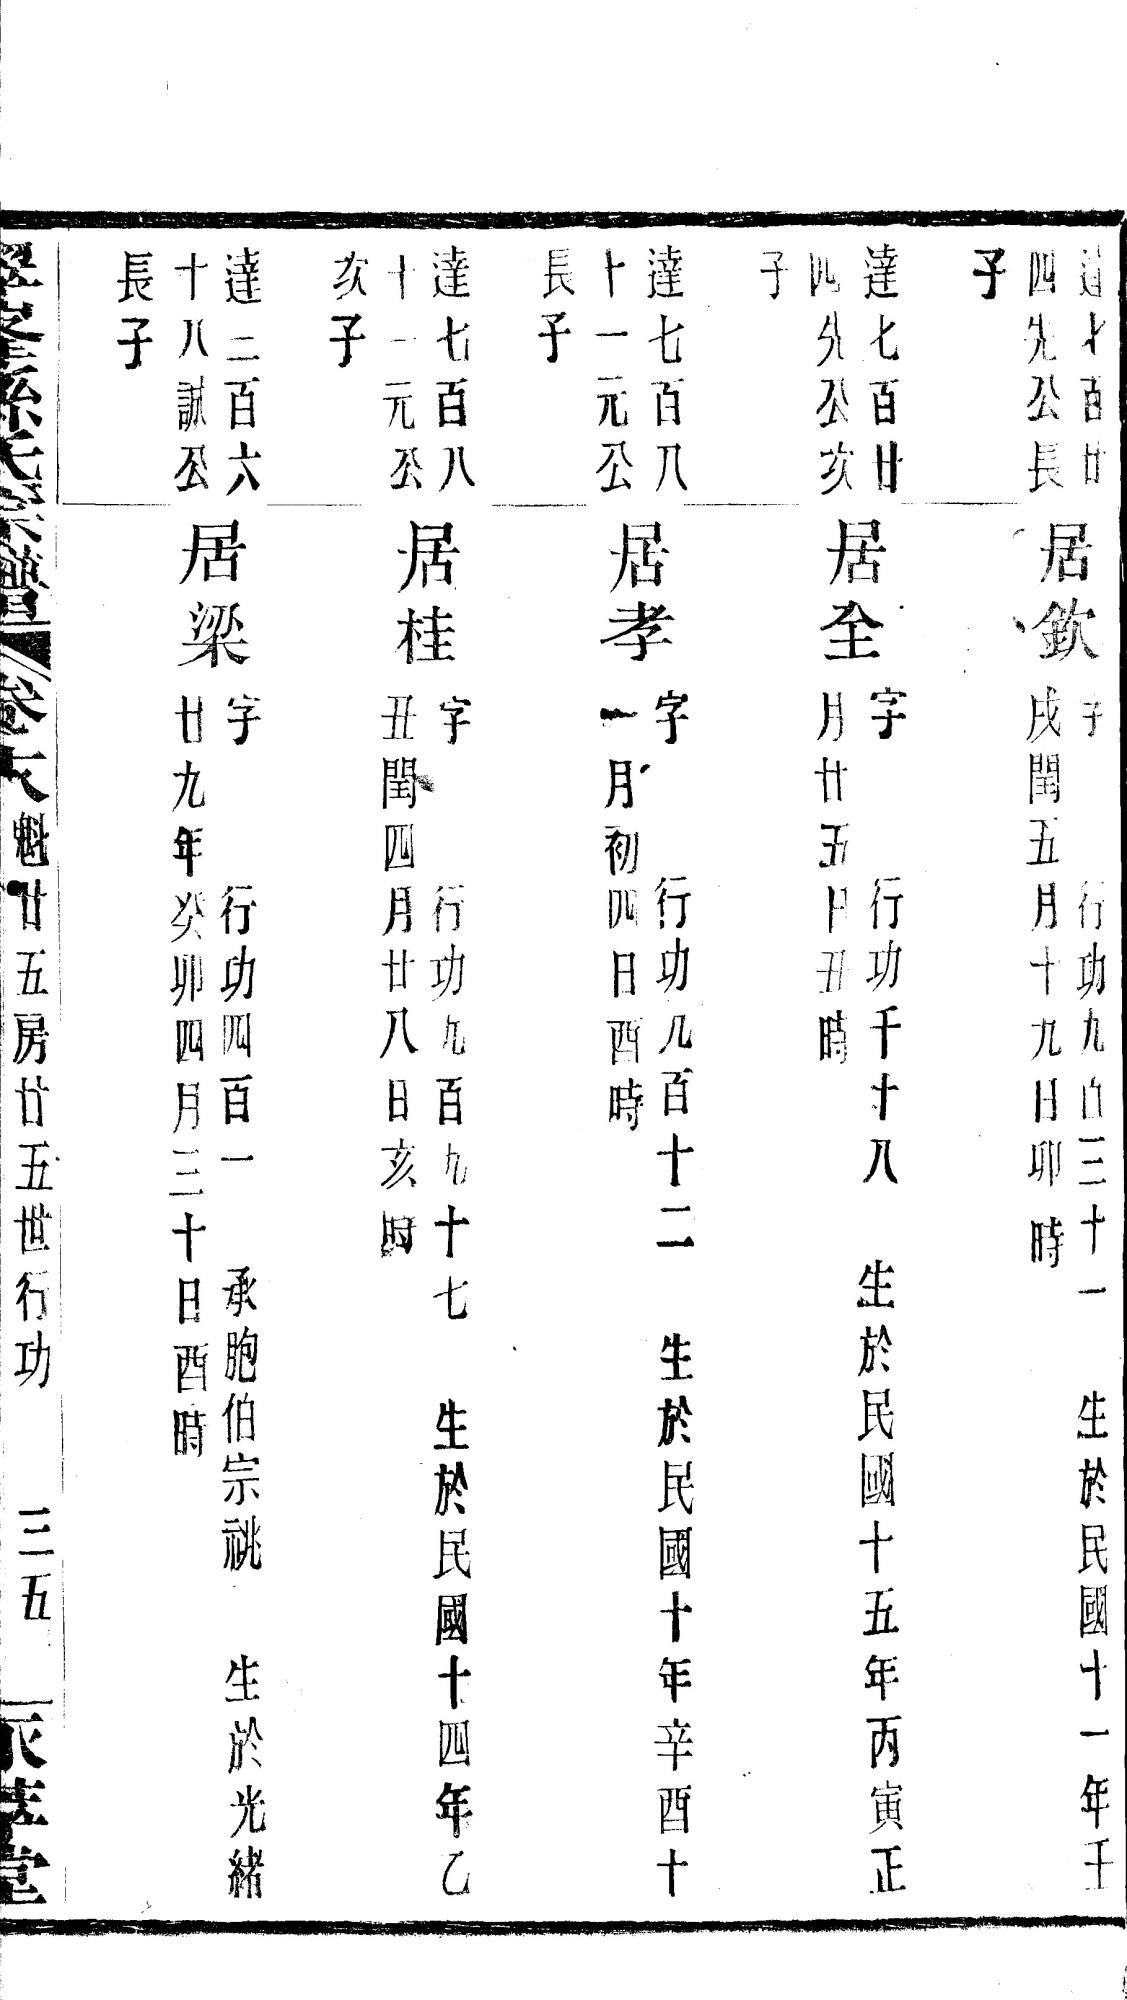 達七百廿
四先公長
子
居欽
字 行功九百三十一 生於民國十一年壬
戌閏五月十九日卯時
達七百廿
四先公次
子
居全
字 行功千十八 生於民國十五年丙寅正
月廿五日丑時
達七百八
十一元公
長子
居孝
字 行功九百十二 生於民國十年辛酉十
一月初四日酉時
達七百八
十一元公
次子
居桂
字 行功九百九十七 生於民國十四年乙
丑閏四月廿八日亥時
達二百六
十八誠公
長子
居梁
字 行功四百一 承胞伯宗祧 生於光緒
廿九年癸卯四月三十日酉時
孫氏宗譜 卷 魁廿五房廿五世行功 三五 堂